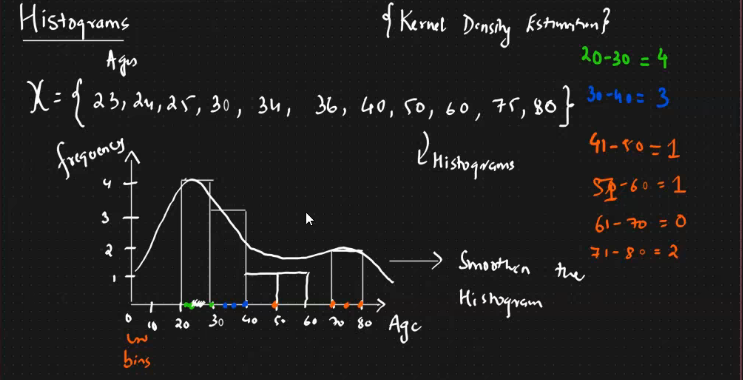 Histograms
{ Kernel Density Estimation}
Ages
X = { 23, 24, 25, 30, 34, 36, 40, 50, 60, 75, 80}
20-30 = 4
30-40 = 3
41-50 = 1
51-60 = 1
61-70 = 0
71-80 = 2
Histograms
frequency
4
3
2
1
0 10 20 30 40 50 60 70 80 Age
bins
Smoothen the
Histogram